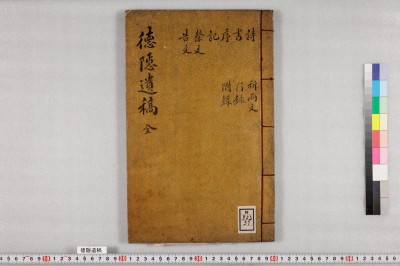 德隱遺稿 全
詩
書
序
記
祭文
告文
祈雨文
行錄
附錄
德隱遺稿